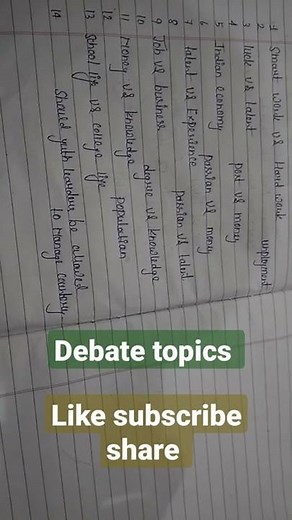 1 Smart work vs Hard work
2 unployment
3 luck vs talent
4 post vs money
5 Indian economy
6 passian vs mony
7 talent vs Experience
8 passian vs talent
9 Job vs business
10 degree vs knowledge
11 Money vs knowledge
12 population
13 School life vs college life
14 Should yuth leaders be allowed
to manage country
Debate topics
Like subscribe
share